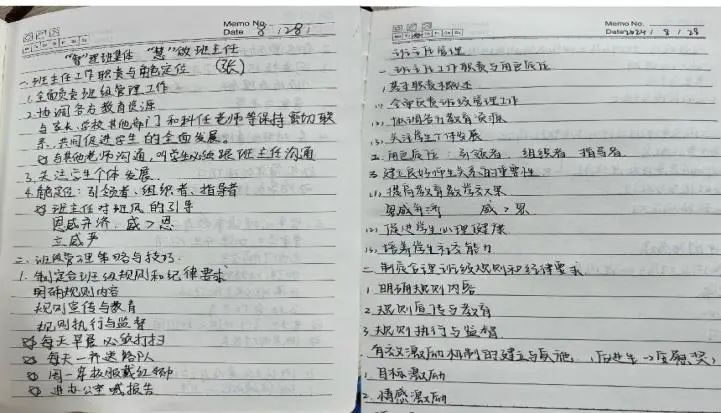 Memo No.
Date 8 / 28 /
"智"理班集体 "慧"做班主任
(张)
一、班主任工作职责与角色定位
1. 全面负责班级管理工作
2. 协调各方教育资源
与家长、学校其他部门和科任老师等保持密切联
系,共同促进学生的全面发展。
与其他老师沟通,叫学生必须跟班主任沟通
3. 关注学生个体发展
4. 角色定位:引领者、组织者、指导者
班主任对班风的引导
恩威并济,威>恩
立威严
二、班级管理策略与技巧
1. 制定合理班级规则和纪律要求
明确规则内容
规则宣传与教育
规则执行与监督
每天早晨必须打扫
每天一齐送路队
周一穿校服戴红领巾
进办公室喊报告
Memo No.
Date 2024 / 8 / 28
班主任管理
一、班主任工作职责与角色定位
1. 基于职责概述
(1) 全面负责班级管理工作
(2) 协调各方教育资源
(3) 关注学生个体发展
2. 角色定位:引领者 组织者 指导者
3 建立良好师生关系的重要性
(1) 提高教育教学效果
恩威并济 威>恩
(2) 促进学生心理健康
(3) 培养学生社交能力
二、制定合理班级规则和纪律要求
1. 明确规则内容
2. 规则宣传与教育
3. 规则执行与监督
有效激励机制的建立与实施
1. 目标激励
2. 情感激励